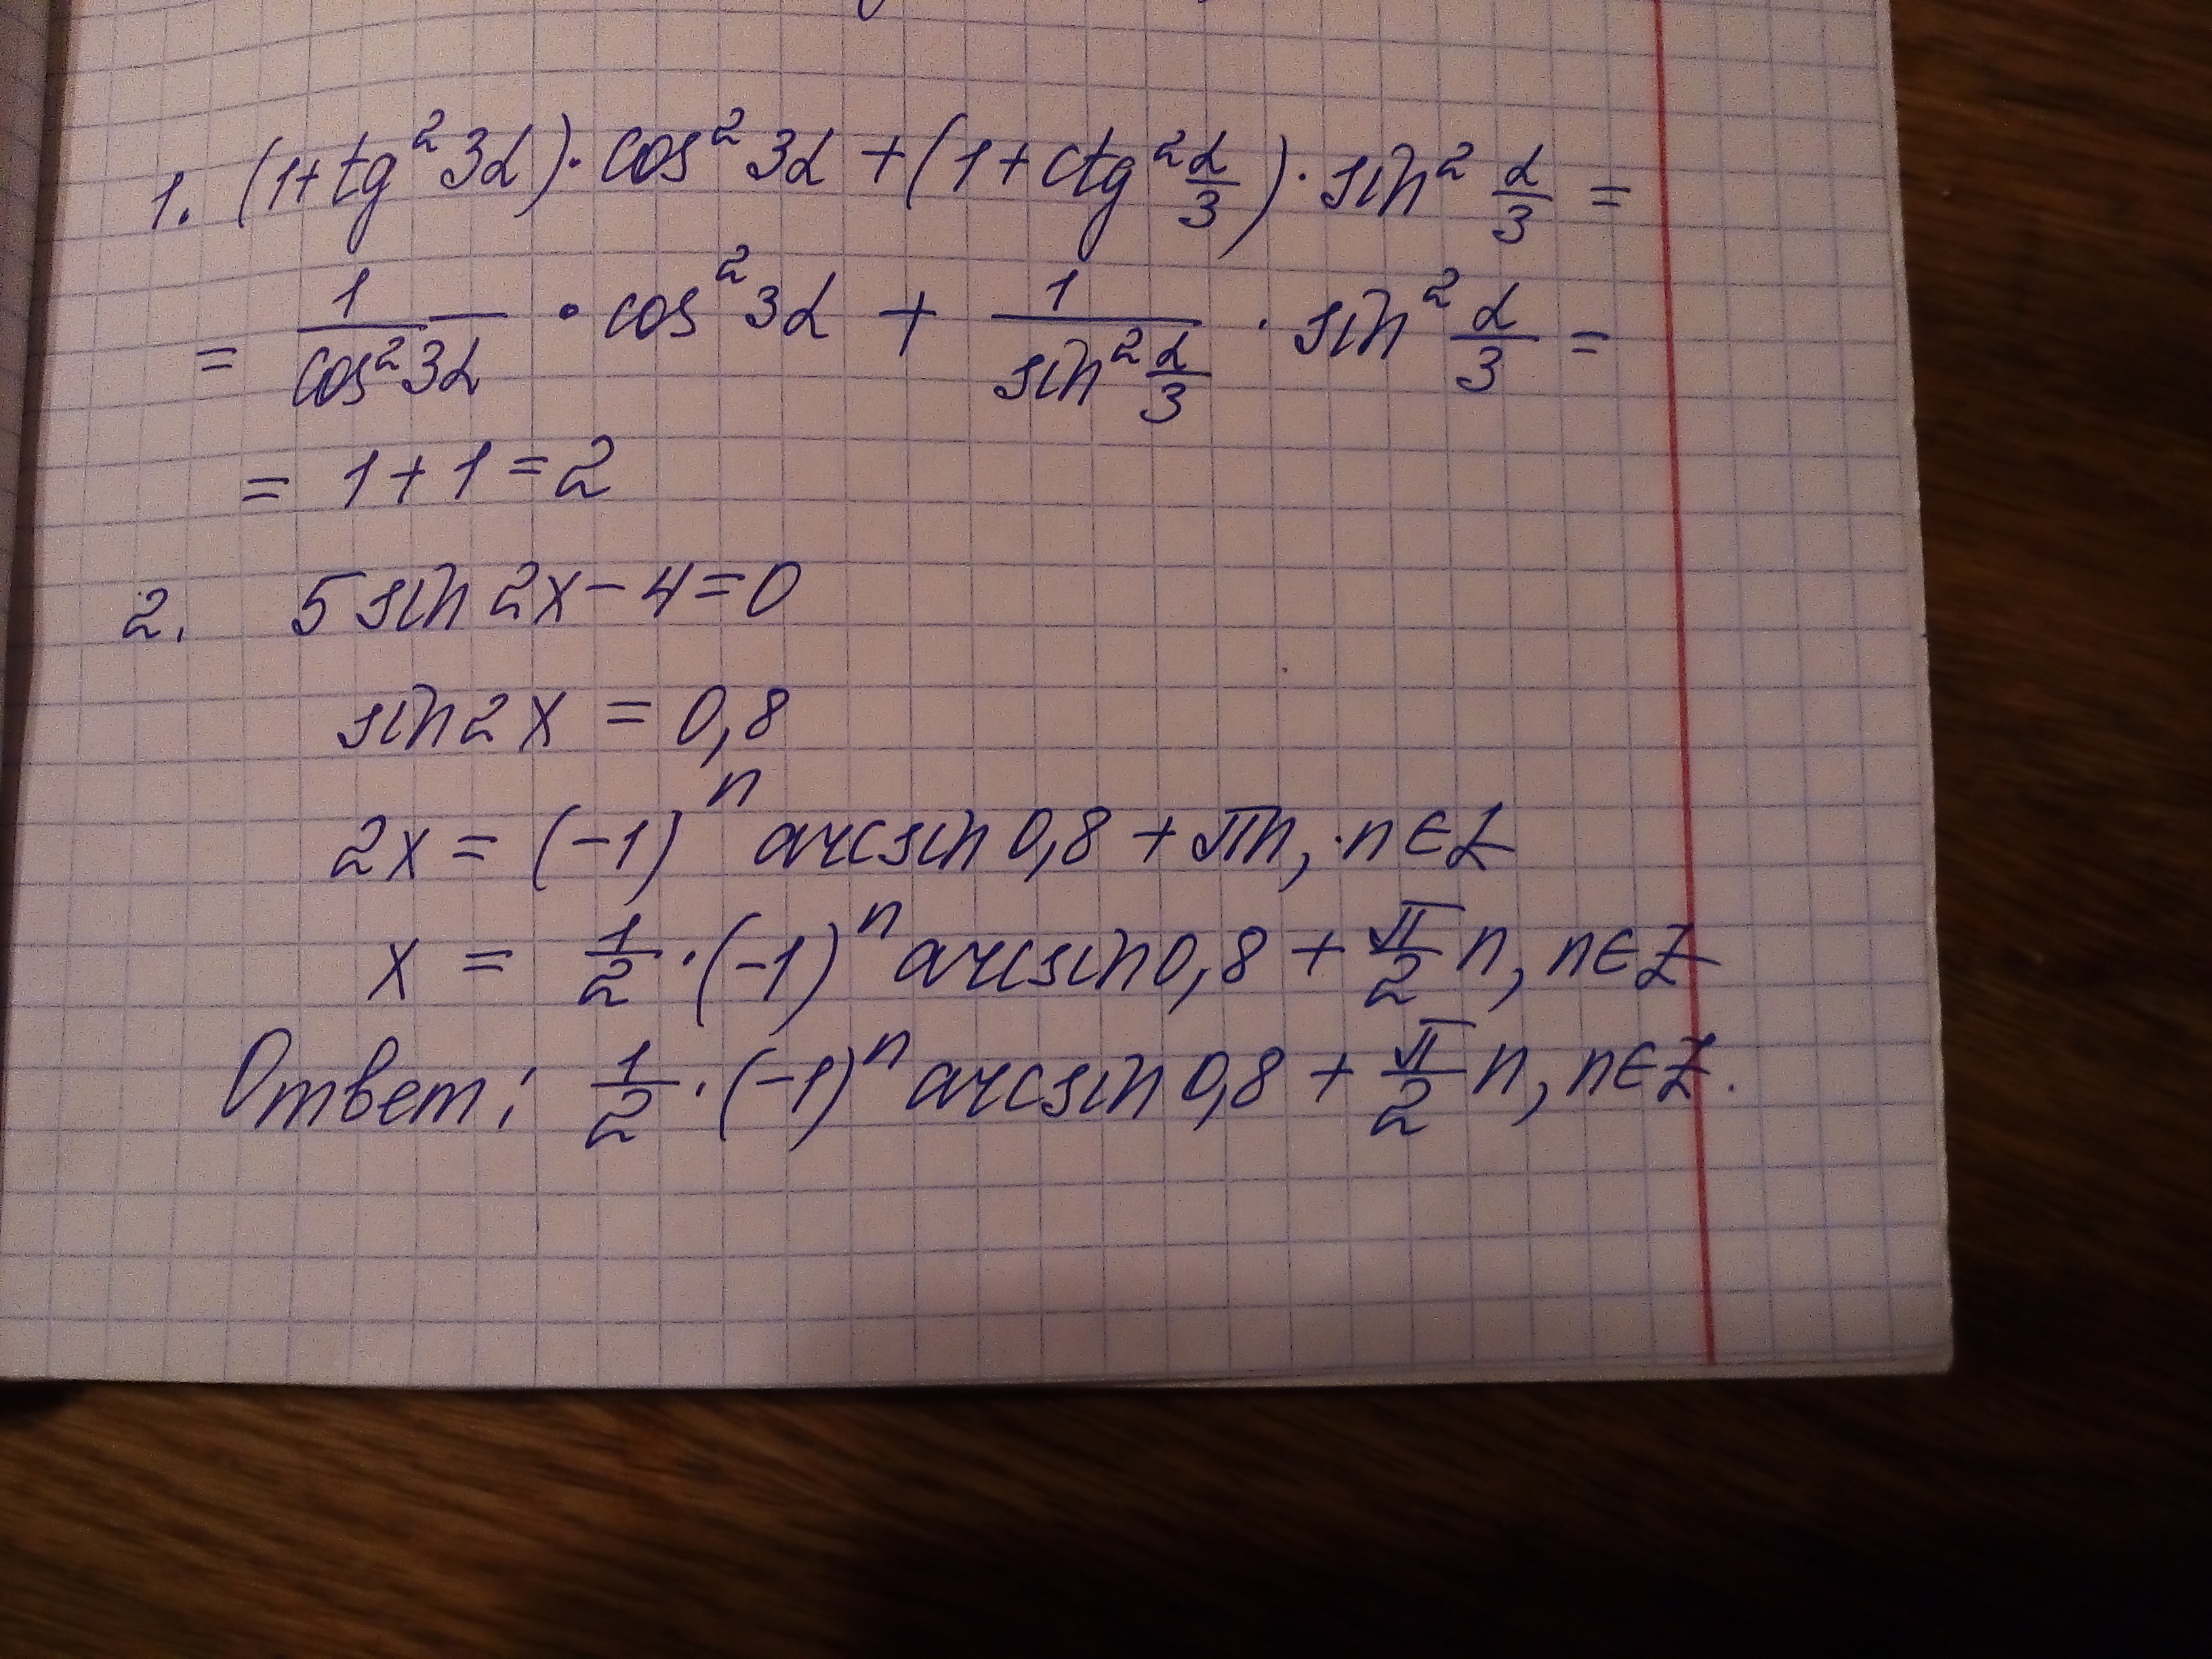 1. (1+tg²3α)·cos²3α+(1+ctg²α/3)·sin²α/3=
=1/cos²3α·cos²3α+1/sin²α/3·sin²α/3=
=1+1=2
2. 5sin2x-4=0
sin2x=0,8
2x=(-1)ⁿarcsin0,8+πn,·n∈Z
x=1/2·(-1)ⁿarcsin0,8+π/2n,n∈Z
Ответ: 1/2·(-1)ⁿarcsin0,8+π/2n,n∈Z.